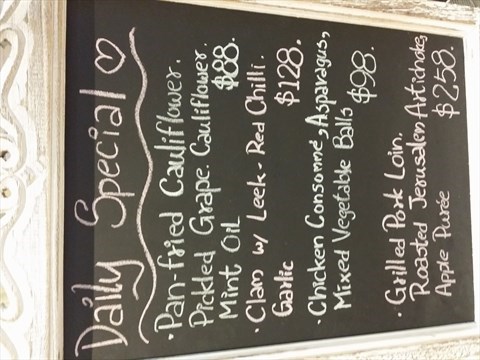 Daily Special ♡
· Pan-fried Cauliflower.
Pickled Grape. Cauliflower.
Mint Oil $88.
· Clam w/ Leek - Red Chilli.
Garlic $128.
· Chicken Consommé, Asparagus,
Mixed Vegetable Balls $98.
· Grilled Pork Loin.
Roasted Jerusalem Artichokes,
Apple Purée $258.